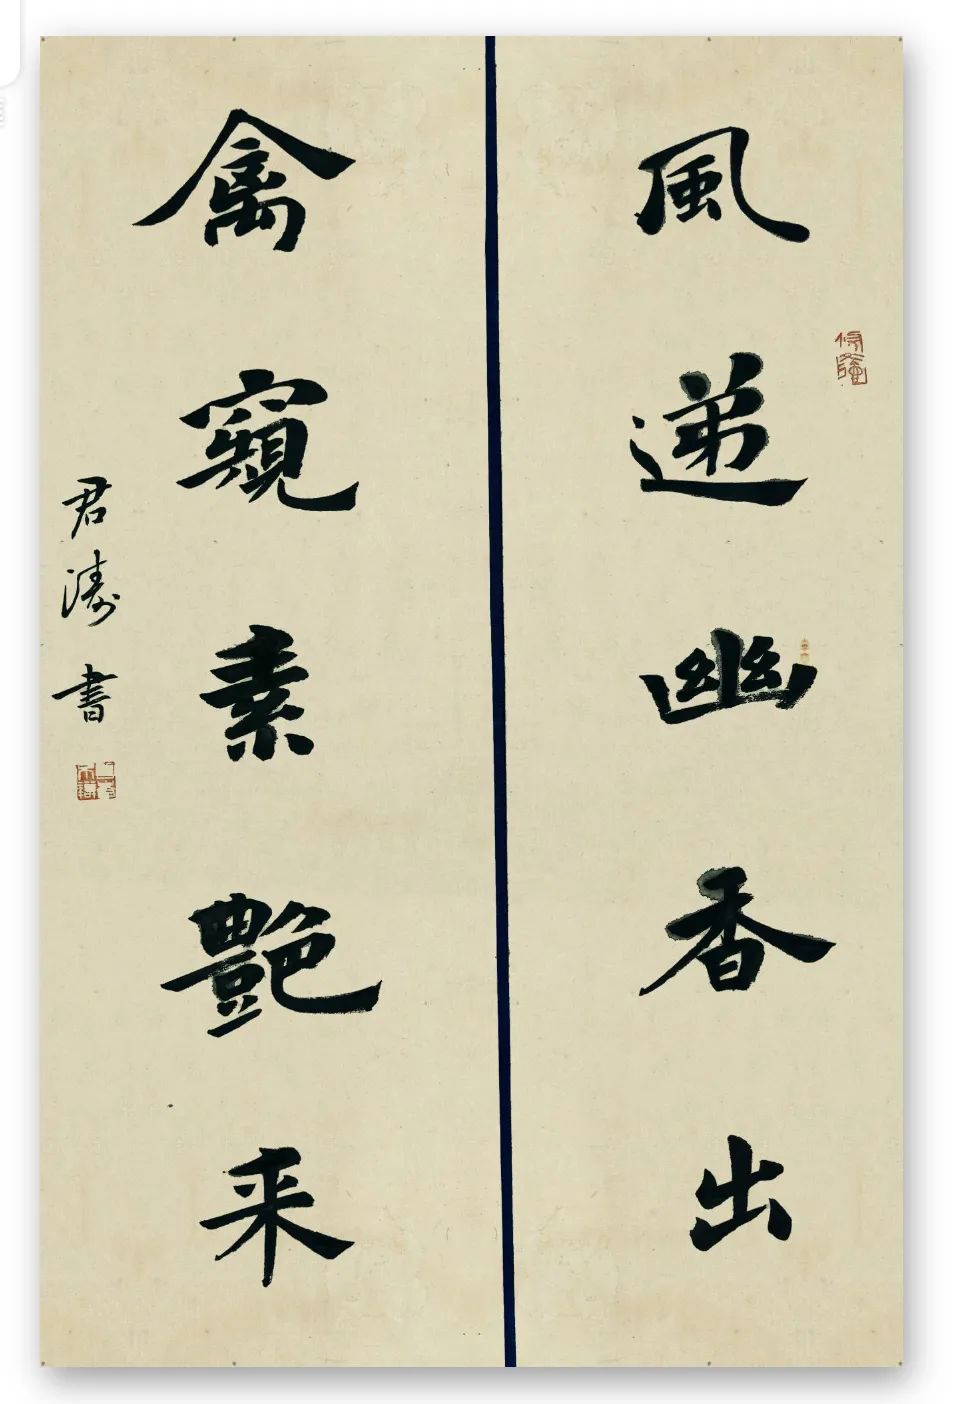 風递幽香出
禽窺素艷来
君濤書